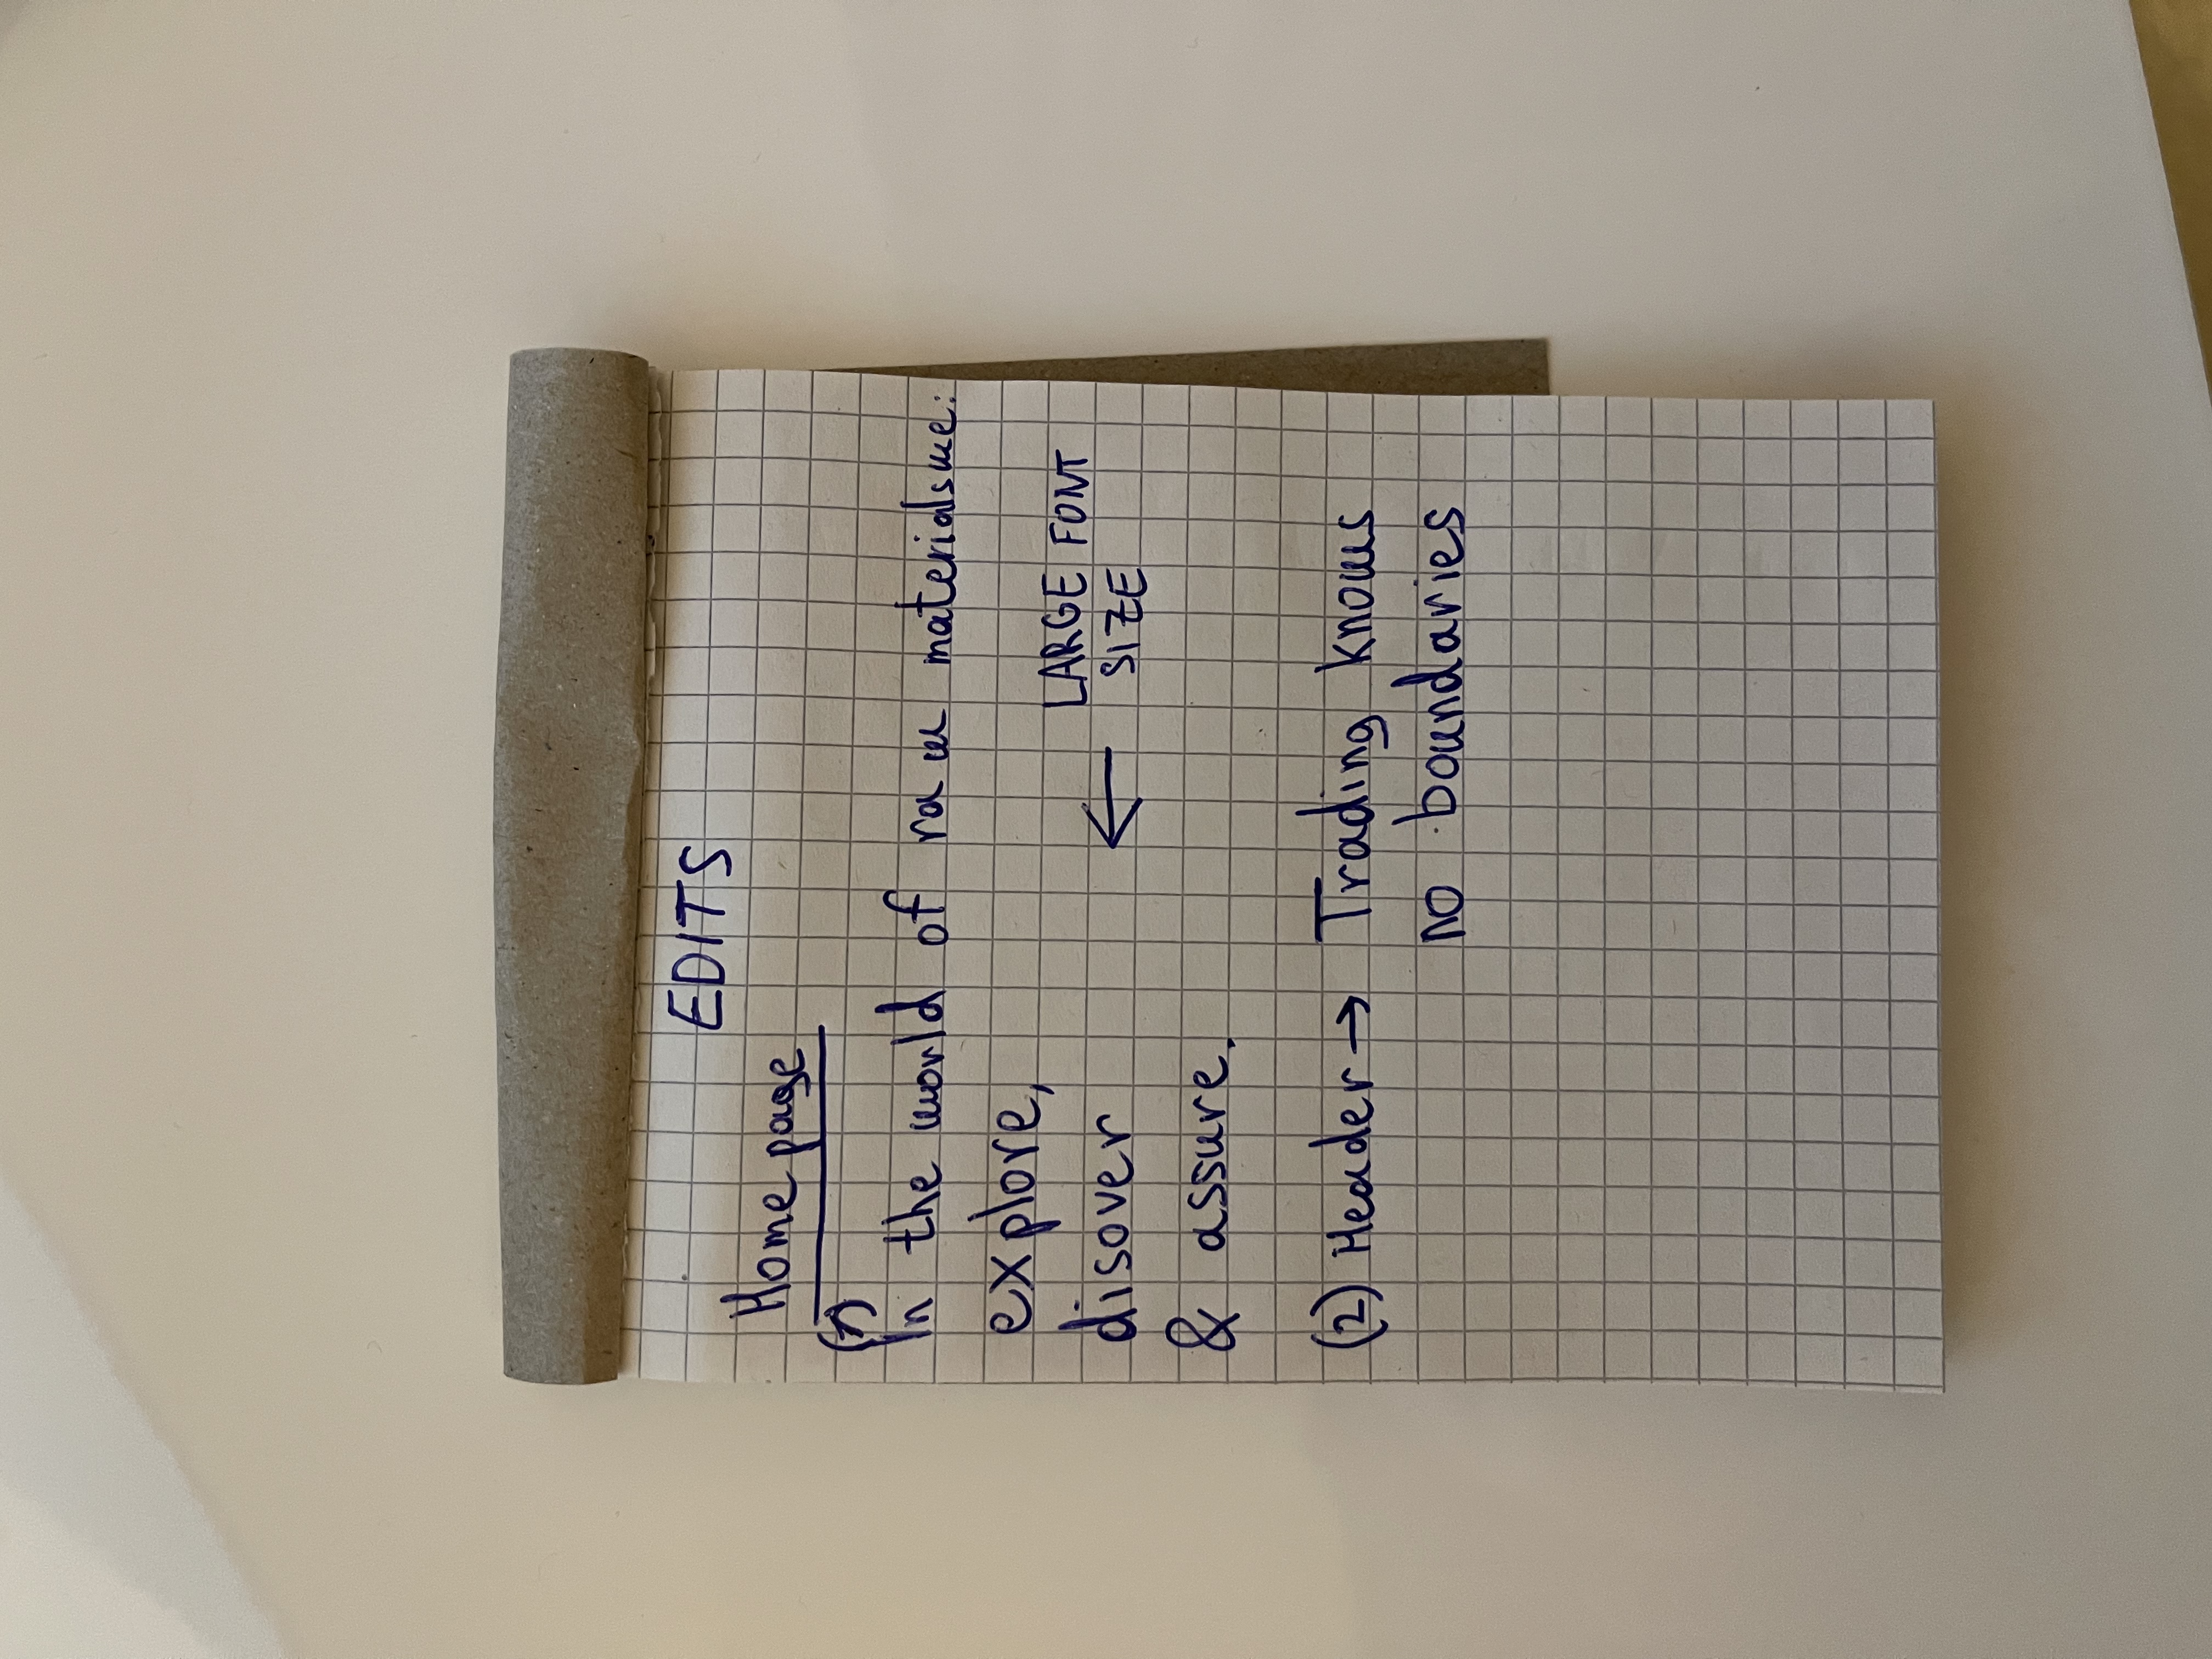 EDITS
Home page
(1)
In the world of raw materials we:
explore,
disover
& assure.
← LARGE FONT
SIZE
(2) Header → Trading knows
no boundaries